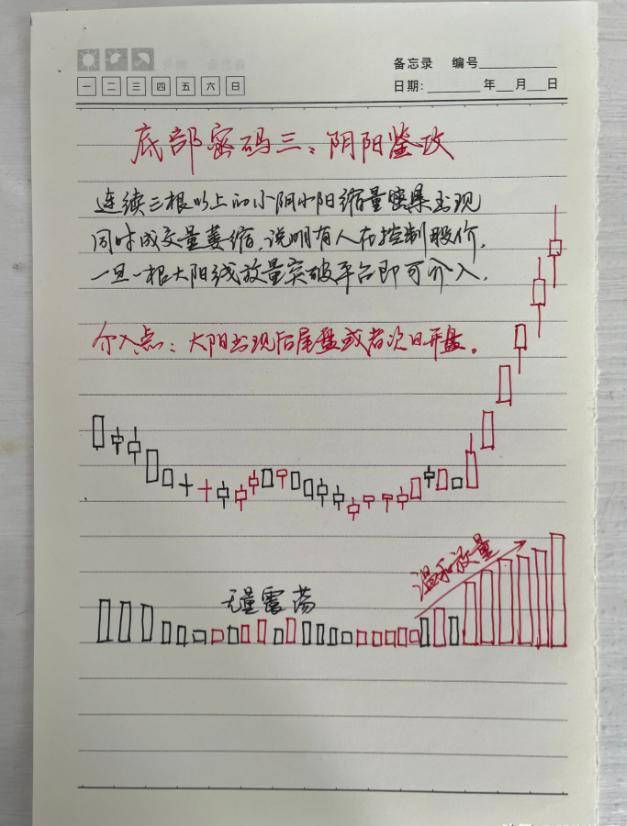 备忘录 编号
一 二 三 四 五 六 日
日期: 年 月 日
底部密码三：阴阳鉴政
连续三根以上的小阴小阳缩量密集出现
同时成交量萎缩，说明有人在控制股价，
一旦一根大阳线放量突破平台即可介入．
介入点：大阳出现后尾盘或者次日开盘．
温和放量
无量震荡